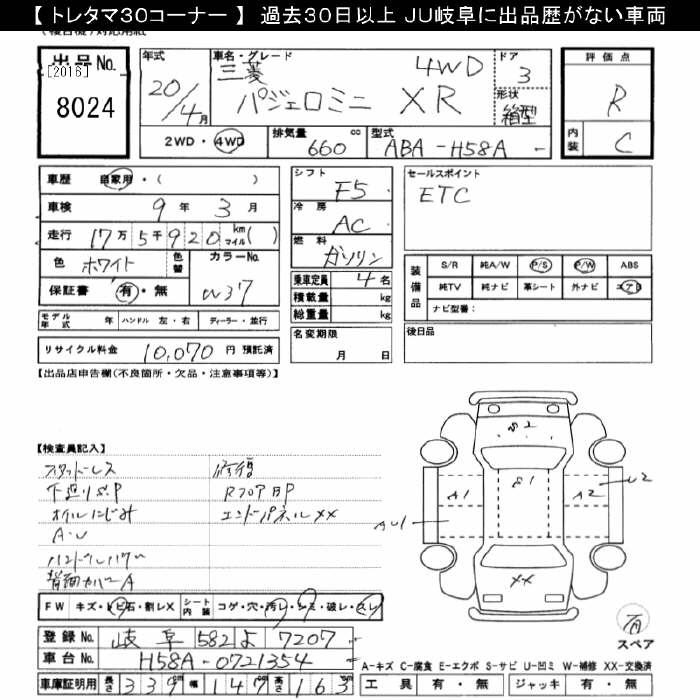 【 トレタマ30コーナー 】 過去30日以上 JU岐阜に出品歴がない車両
出品No. [2016] 8024
年式 20/4月
車名・グレード 三菱 パジェロミニ 4WD XR
ドア 3
形状 箱型
評価点 R
内装 C
2WD・4WD
排気量 660 cc
型式 ABA-H58A
車歴 自家用・( )
車検 9年 3月
走行 17万 5千 920 km マイル( )
色 ホワイト 色替 カラーNo. W37
保証書 有・無
モデル年式 年 ハンドル 左・右 ディーラー・並行
リサイクル料金 10,070 円 預託済
シフト F5
冷房 AC
燃料 ガソリン
乗車定員 4名
積載量 kg
総重量 kg
名変期限 月 日
セールスポイント
ETC
装備品 S/R 純A/W P/S P/W ABS
純TV 純ナビ 革シート 外ナビ エアB
ナビ型番:
後日品
【出品店申告欄(不良箇所・欠品・注意事項等)】
【検査員記入】
スタッドレス
下廻りS.P
オイルにじみ
A・U
背面カバーA
修復
Rフロア
エンドパネルXX
S2
A1 S1 A2 U2
AU1
XX
FW キズ・トビ石・割レX シート内装 コゲ・穴・汚レ・シミ・破レ・スレ
登録No. 岐阜 582 よ 7207
車台No. H58A-0721354
車庫証明用 長さ 339 幅 147 高さ 163
有 スペア
A-キズ C-腐食 E-エクボ S-サビ U-凹ミ W-補修 XX-交換済
工具 有・無 ジャッキ 有・無